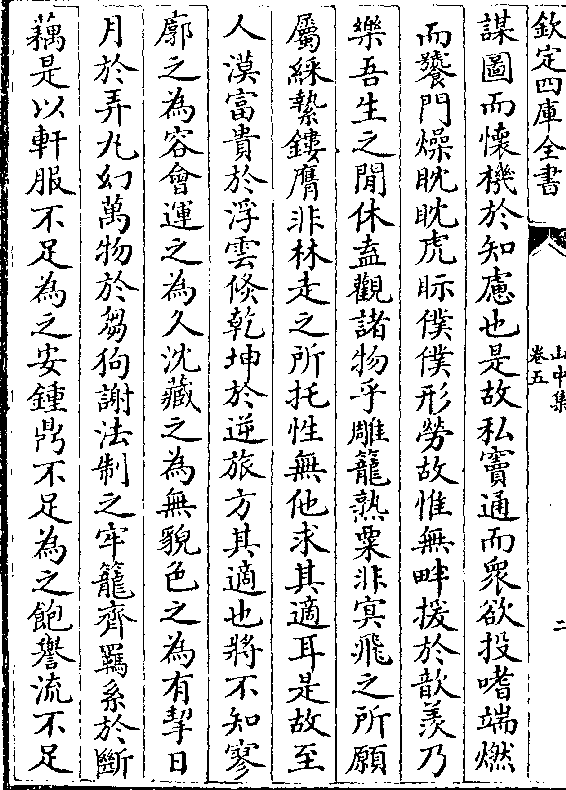 欽定四庫全書
山中集
卷五
二
謀圖而懷機於知慮也是故私竇通而衆欲投嗜端燃
而饕門燥眈眈虎眎僕僕形勞故惟無畔援於歆羡乃
樂吾生之閒休盍觀諸物乎雕籠熟粟非冥飛之所願
屬綵縶鏤膺非林走之所托性無他求其適耳是故至
人漠富貴於浮雲倐乾坤於逆旅方其適也將不知寥
廓之為容會運之為久沈藏之為無貌色之為有挈日
月於弄丸幻萬物於芻狗謝法制之牢籠齊羈系於斷
藕是以軒服不足為之安鍾鼎不足為之飽譽流不足